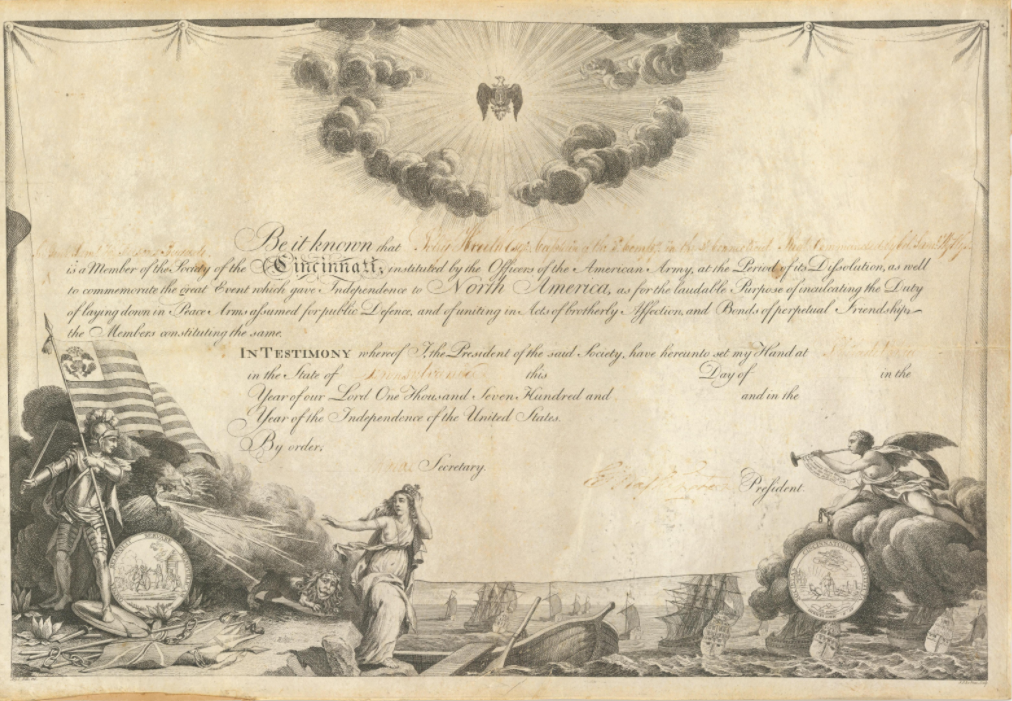 Be it known that
is a Member of the Society of the Cincinnati; instituted by the Officers of the American Army, at the Period of its Dissolution, as well
to commemorate the great Event which gave Independence to North America, as for the laudable Purpose of inculcating the Duty
of laying down in Peace Arms assumed for public Defence, and of uniting in Acts of brotherly Affection, and Bonds of perpetual Friendship
the Members constituting the same.
In Testimony whereof I, the President of the said Society, have hereunto set my Hand at
in the State of this Day of in the
Year of our Lord One Thousand Seven Hundred and and in the
Year of the Independence of the United States.
By order,
Secretary.
President.